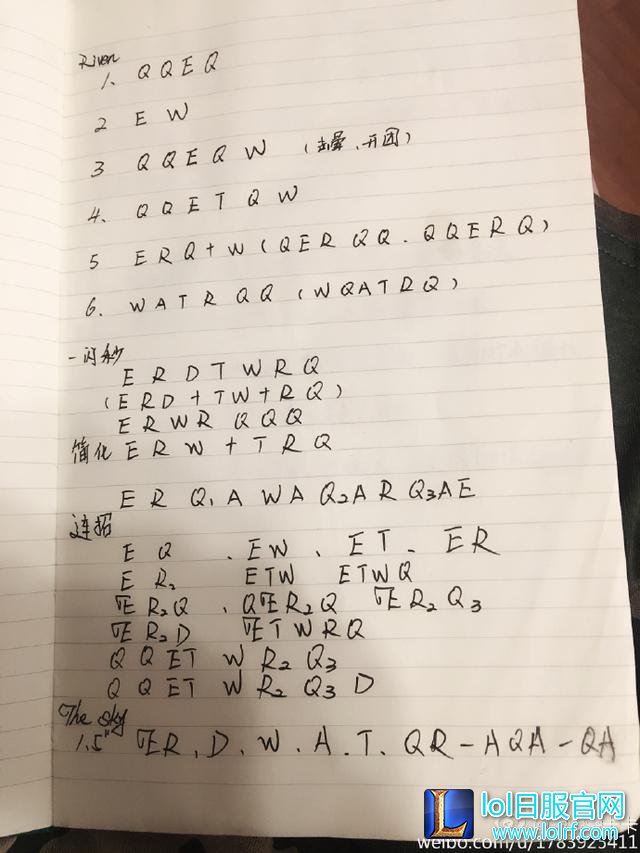 Riven
1、 Q Q E Q
2 E W
3 Q Q E Q W (击晕、开团)
4、 Q Q E T Q W
5 E R Q + W ( Q E R Q Q . Q Q E R Q )
6. W A T R Q Q ( W Q A T R Q )
一闪秒
E R D T W R Q
( E R D + T W + R Q )
E R W R Q Q Q
简化 E R W + T R Q
E R Q₁ A W A Q₂ A R Q₃ A E
连招
E Q . E W 、 E T . E R
E R₂ E T W E T W Q
E R₂ Q 、 Q E R₂ Q E R₂ Q₃
E R₂ D E T W R Q
Q Q E T W R₂ Q₃
Q Q E T W R₂ Q₃ D
The sky
1.5" E R . D . W . A . T . Q R - A Q A - Q A
lol日服官网
www.lolrf.com
weibo.com/u/1783923411